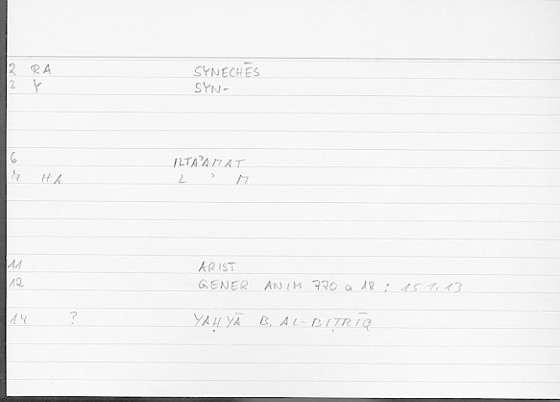 2 RA SYNECHĒS
3 Y SYN-
6 ILTAʾAMAT
7 HA L ʾ M
11 ARIST
12 GENER ANIM 770 a 18 : 151,13
14 ? YAḤYĀ B. AL-BIṬRĪQ